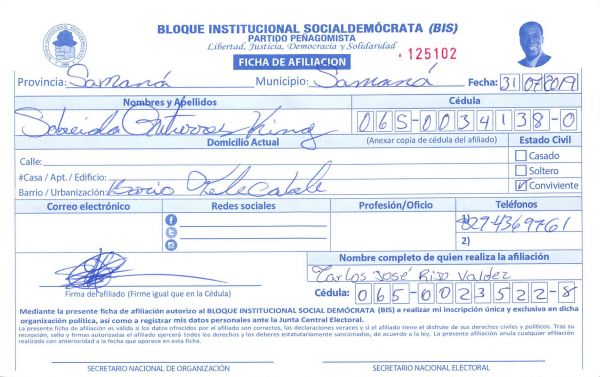 BLOQUE INSTITUCIONAL SOCIALDEMÓCRATA (BIS)
PARTIDO PEÑAGOMISTA
Libertad, Justicia, Democracia y Solidaridad
FICHA DE AFILIACION
125102
Provincia: Samaná Municipio: Samaná Fecha: 31/07/2019
Nombres y Apellidos Cédula
King 065-0034138-0
Domicilio Actual (Anexar copia de cédula del afiliado) Estado Civil
Calle: Casado
#Casa / Apt. / Edificio: Soltero
Barrio / Urbanización: Barrio Telecable Conviviente
Correo electrónico Redes sociales Profesión/Oficio Teléfonos
1) 8294369761
2)
Nombre completo de quien realiza la afiliación
Carlos José Rijo Valdez
Firma del afiliado (Firme igual que en la Cédula) Cédula: 065-0023522-8
Mediante la presente ficha de afiliación autorizo al BLOQUE INSTITUCIONAL SOCIAL DEMÓCRATA (BIS) a realizar mi inscripción única y exclusiva en dicha
organización política, así como a registrar mis datos personales ante la Junta Central Electoral.
La presente ficha de afiliación es válida si los datos ofrecidos por el afiliado son correctos, las declaraciones veraces y si el afiliado tiene el disfrute de sus derechos civiles y políticos. Tras su
recepción, sello y firmas autorizadas el afiliado ejercerá todos los derechos y los deberes estatutariamente sancionados, de acuerdo a la ley. La presente afiliación anula cualquier afiliación
realizada con anterioridad a la fecha que aparece en esta ficha.
SECRETARIO NACIONAL DE ORGANIZACIÓN SECRETARIO NACIONAL ELECTORAL